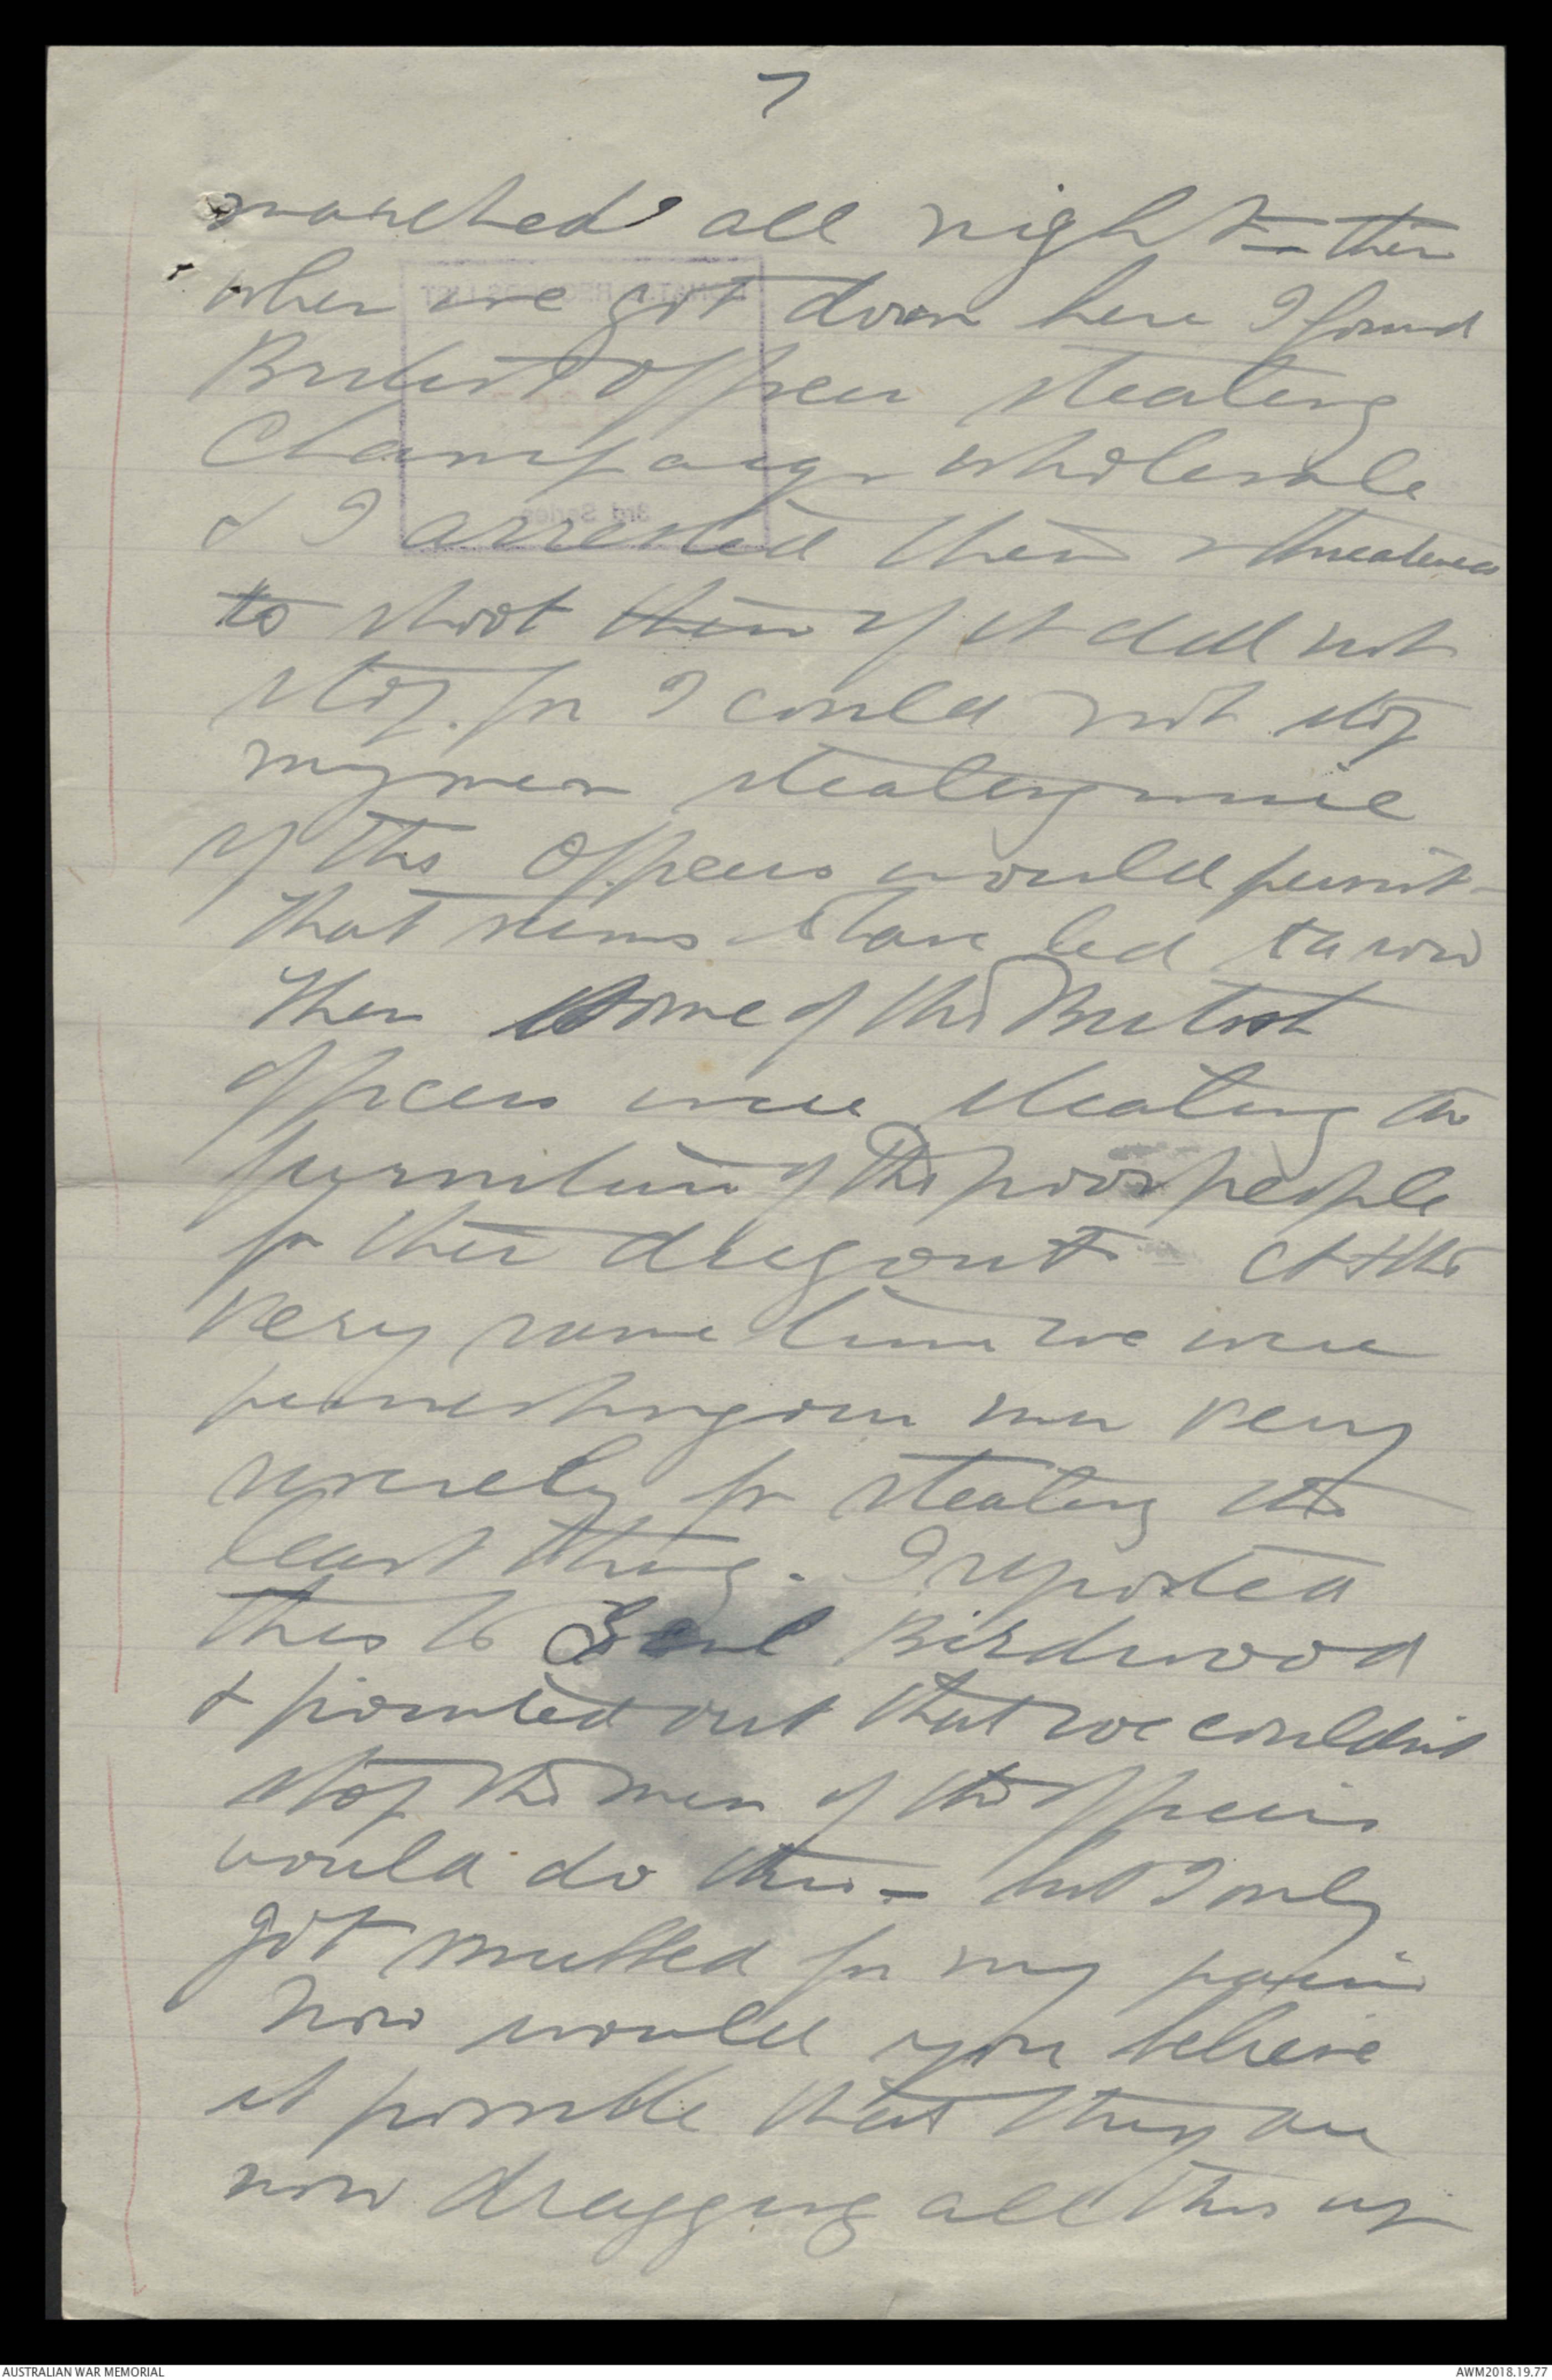 7
marched all night – then
when we got down here I found
British Officers stealing
Champagne wholesale
& I arrested them & threatened
to shoot them if it did not
stop. for I could not stop
my men stealing wine
if the Officers would permit –
that seems to have led to a row
Then some of the British
officers were stealing the
furniture of the poor people
for their dugouts At the
very same time we were
punishing our men very
severely for stealing the
least thing. I reported
this to Genl Birdwood
& pointed out that we couldnt
stop the men if the officers
would do this – but I only
got snubbed for my pains
Now would you believe
it possible that they are
now dragging all this up
3rd Series
AUSTRALIAN WAR MEMORIAL
AWM2018.19.77